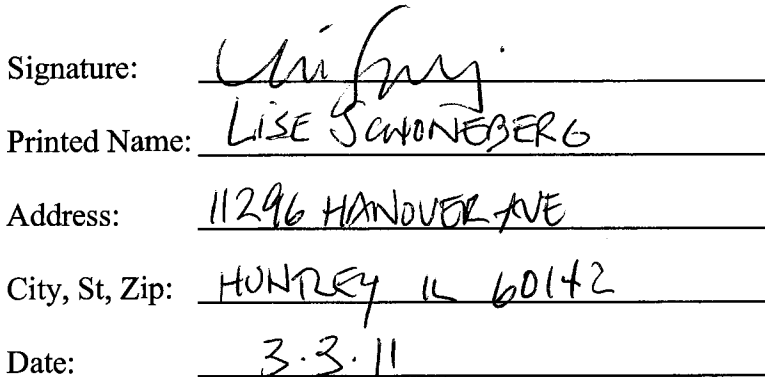 Signature:
Printed Name: LISE SCHONEBERG
Address: 11296 HANOVER AVE
City, St, Zip: HUNTLEY IL 60142
Date: 3.3.11